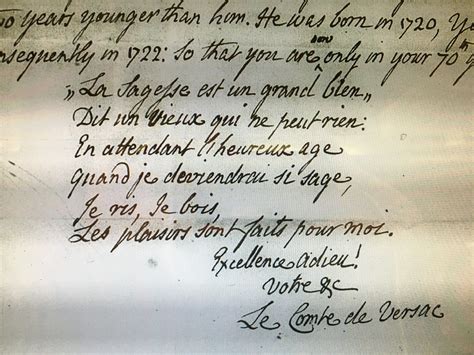 years younger than him. He was born in 1720,
in 1722: so that you are now only in your 70th
„La Sagesse est un grand bien„
Dit un vieux qui ne peut rien:
En attendant l'heureux age
Quand je deviendrai si sage,
Je ris, Je bois,
Les plaisirs sont faits pour moi.
Excellence adieu!
votre &c
Le Comte de Versac